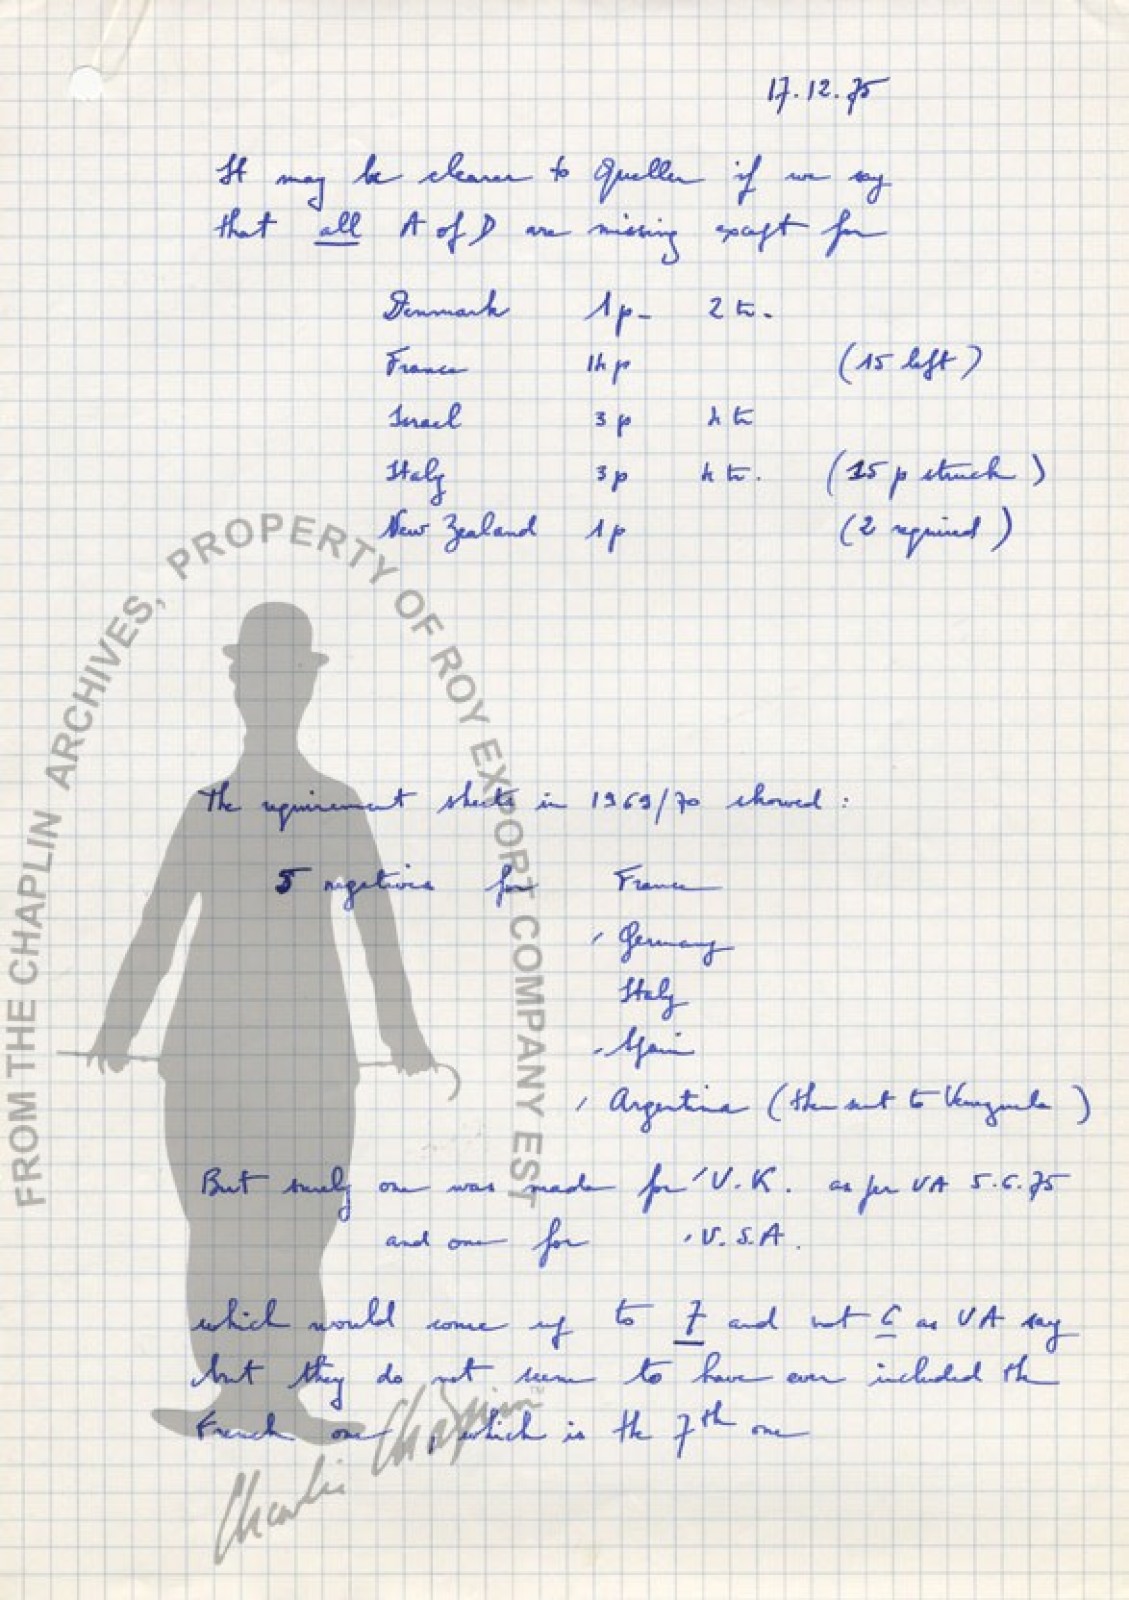 17.12.75
It may be clearer to Queller if we say
that all A of D are missing except for
Denmark 1p- 2 tr.
France 14p (15 left)
Israel 3p 4 tr
Italy 3p 4 tr. (15 p struck)
New Zealand 1p (2 required)
The requirement sheets in 1969/70 showed :
5 negatives for France
Germany
Italy
Spain
Argentina (then sent to Venezuela)
But surely one was made for U.K. as per UA 5.6.75
and one for U.S.A.
which would come up to 7 and not 6 as UA say
but they do not seem to have ever included the
French one, which is the 7th one
FROM THE CHAPLIN ARCHIVES, PROPERTY OF ROY EXPORT COMPANY EST
Charlie Chaplin™